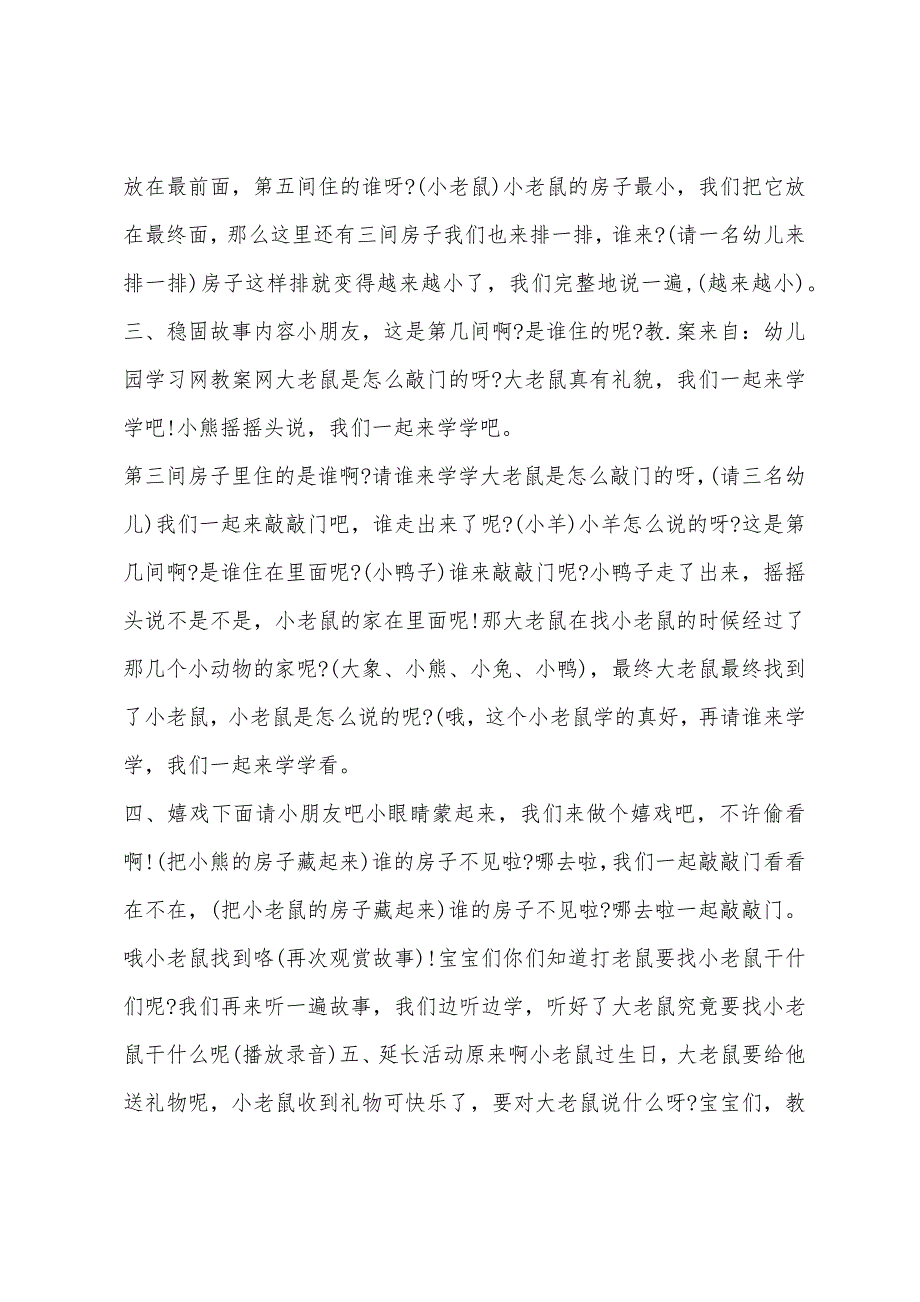 放在最前面，第五间住的谁呀?(小老鼠)小老鼠的房子最小，我们把它放
在最终面，那么这里还有三间房子我们也来排一排，谁来?(请一名幼儿来
排一排)房子这样排就变得越来越小了，我们完整地说一遍,(越来越小)。
三、稳固故事内容小朋友，这是第几间啊?是谁住的呢?教.案来自：幼儿
园学习网教案网大老鼠是怎么敲门的呀?大老鼠真有礼貌，我们一起来学
学吧!小熊摇摇头说，我们一起来学学吧。
第三间房子里住的是谁啊?请谁来学学大老鼠是怎么敲门的呀，(请三名幼
儿)我们一起来敲敲门吧，谁走出来了呢?(小羊)小羊怎么说的呀?这是第
几间啊?是谁住在里面呢?(小鸭子)谁来敲敲门呢?小鸭子走了出来，摇摇
头说不是不是，小老鼠的家在里面呢!那大老鼠在找小老鼠的时候经过了
那几个小动物的家呢?(大象、小熊、小兔、小鸭)，最终大老鼠最终找到
了小老鼠，小老鼠是怎么说的呢?(哦，这个小老鼠学的真好，再请谁来学
学，我们一起来学学看。
四、嬉戏下面请小朋友吧小眼睛蒙起来，我们来做个嬉戏吧，不许偷看
啊!(把小熊的房子藏起来)谁的房子不见啦?哪去啦,我们一起敲敲门看看
在不在，(把小老鼠的房子藏起来)谁的房子不见啦?哪去啦一起敲敲门。
哦小老鼠找到咯(再次观赏故事)!宝宝们你们知道打老鼠要找小老鼠干什
们呢?我们再来听一遍故事，我们边听边学，听好了大老鼠究竟要找小老
鼠干什么呢(播放录音)五、延长活动原来啊小老鼠过生日，大老鼠要给他
送礼物呢，小老鼠收到礼物可快乐了，要对大老鼠说什么呀?宝宝们，教